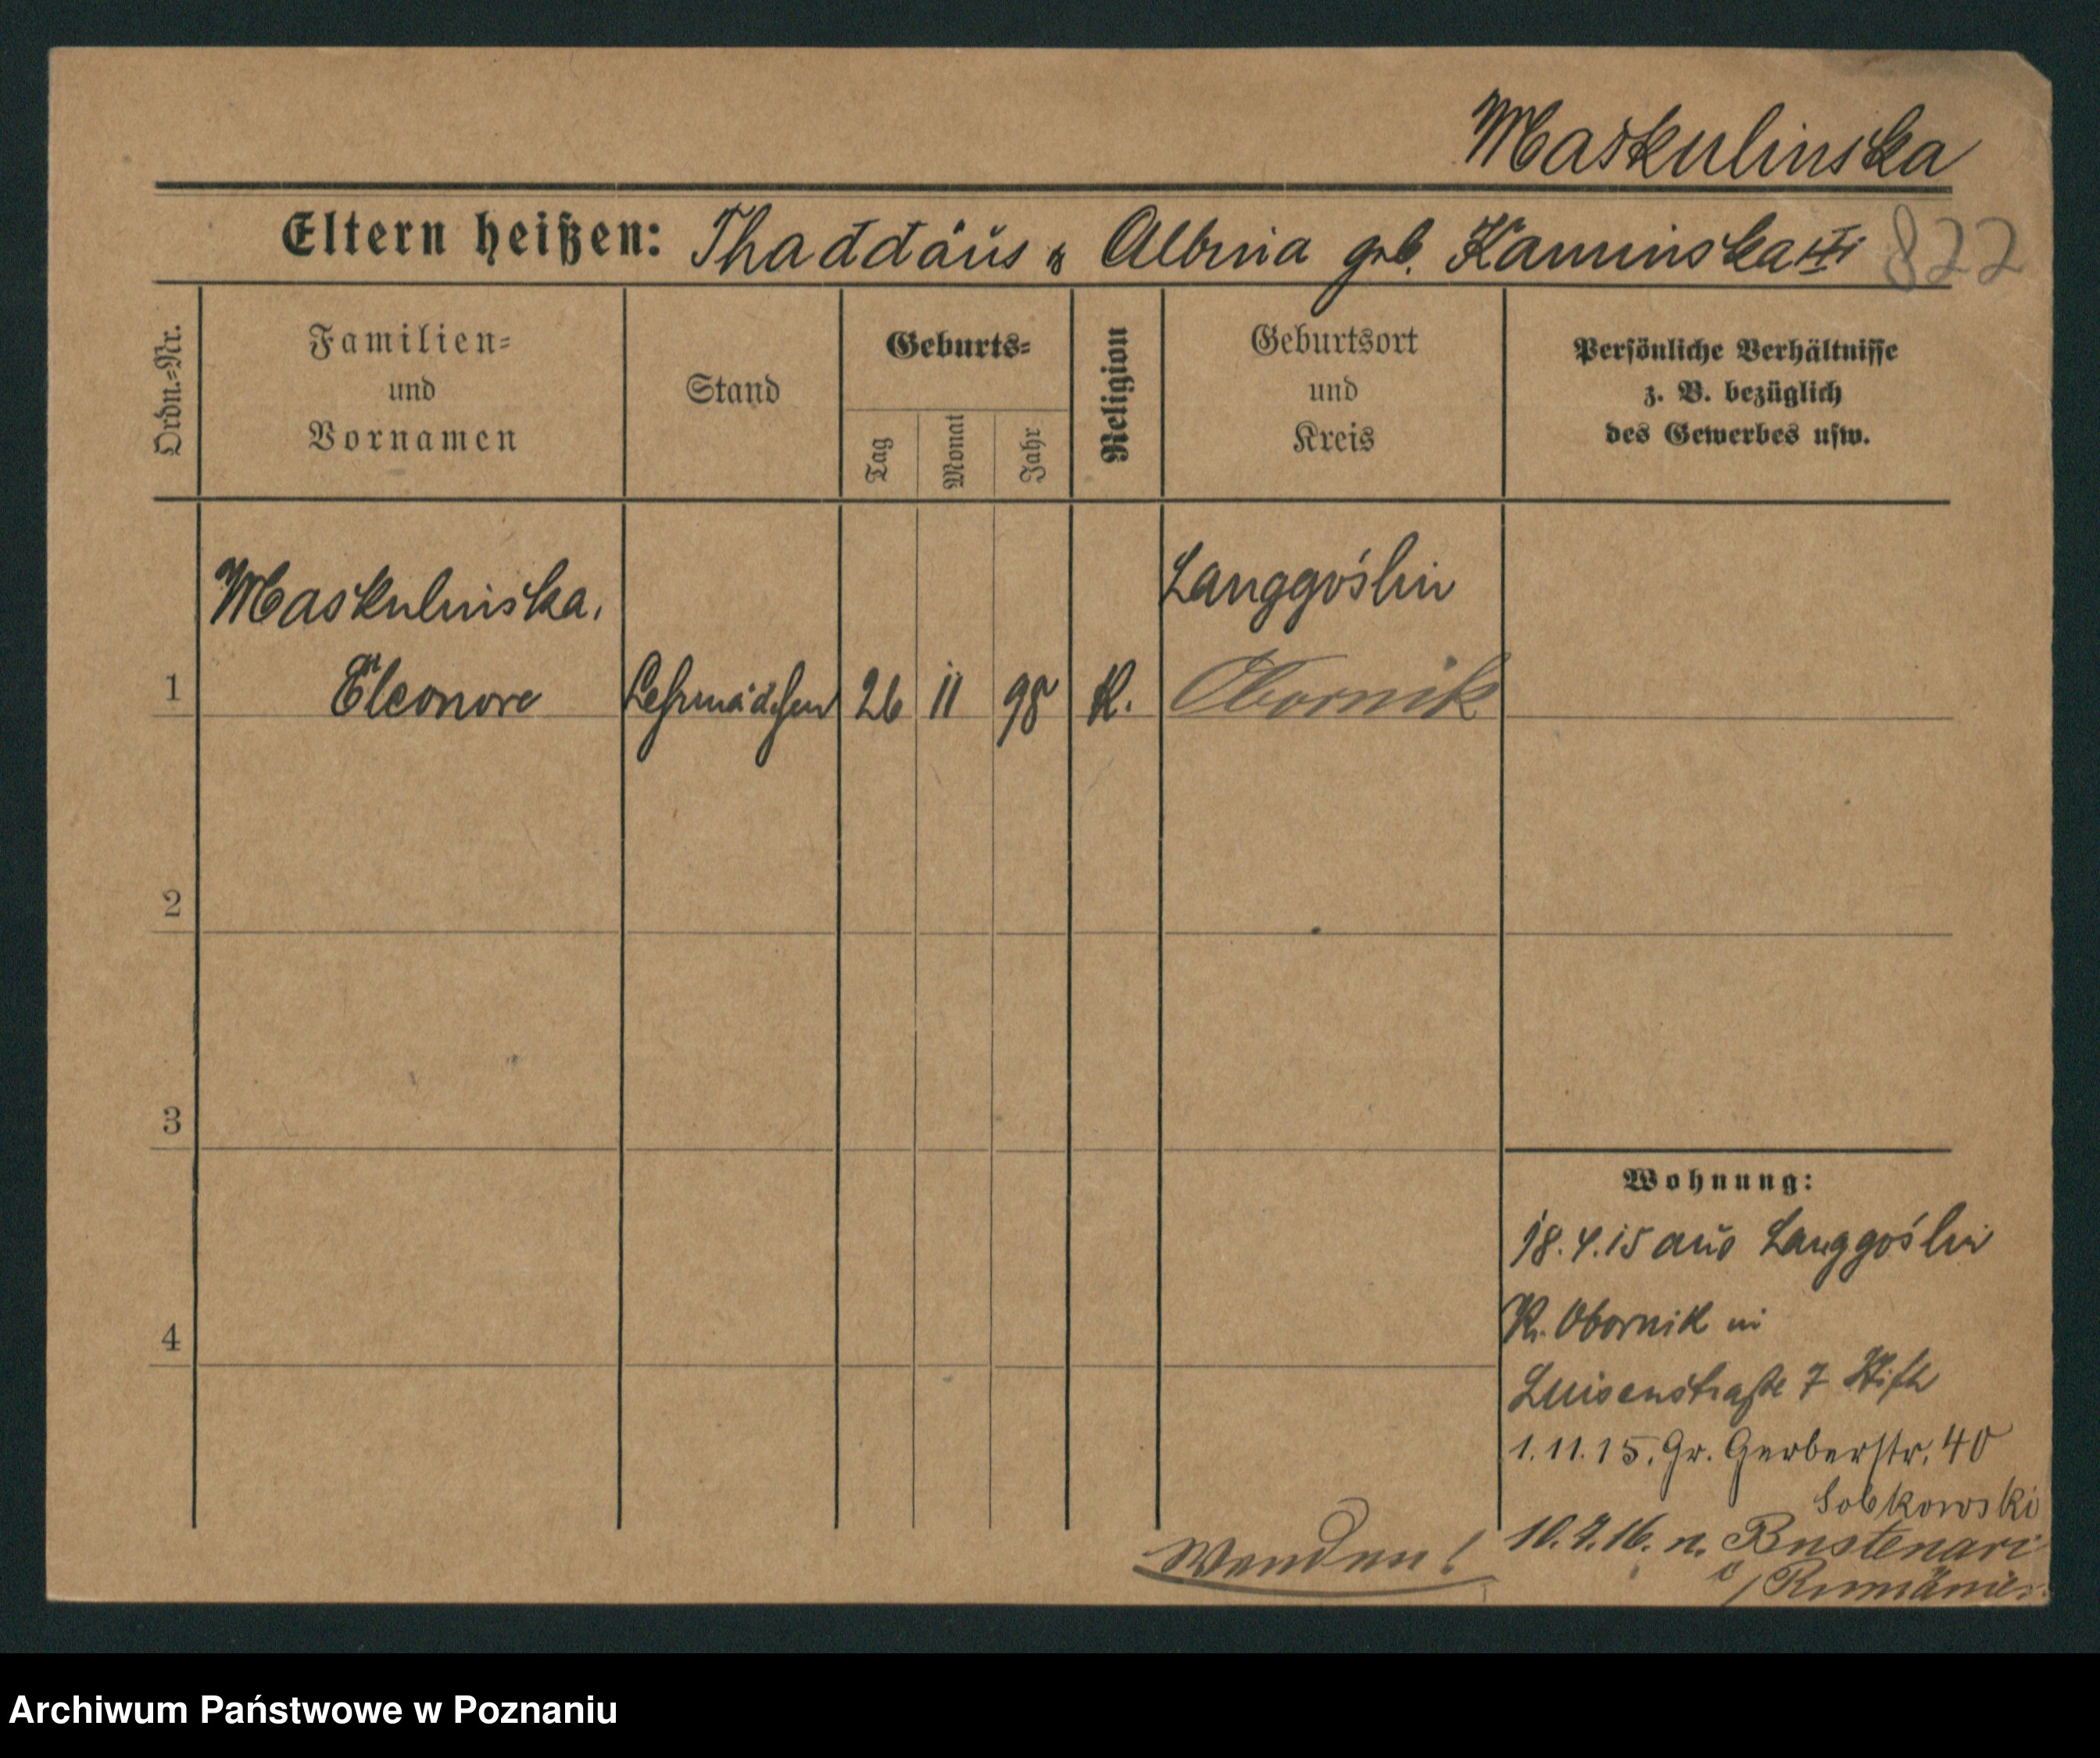 Maskulinska
Eltern heißen: Thaddäus & Albina geb. Kaminska
822
Ordn.-Nr.
Familien-
und
Vornamen
Stand
Geburts-
Tag
Monat
Jahr
Religion
Geburtsort
und
Kreis
Persönliche Verhältnisse
z. B. bezüglich
des Gewerbes usw.
Maskulinska,
Langgoślin
1 Eleonore Lehrmädchen 26 11 98 K. Obornik
2
3
4
Wohnung:
18.4.15 aus Langgoślin
Kr. Obornik in
Luisenstraße 7
1.11.15. Gr. Gerberstr. 40
Sobkowski
10.7.16. n. Bustenari
i/Rumänien.
Wenden!
Archiwum Państwowe w Poznaniu